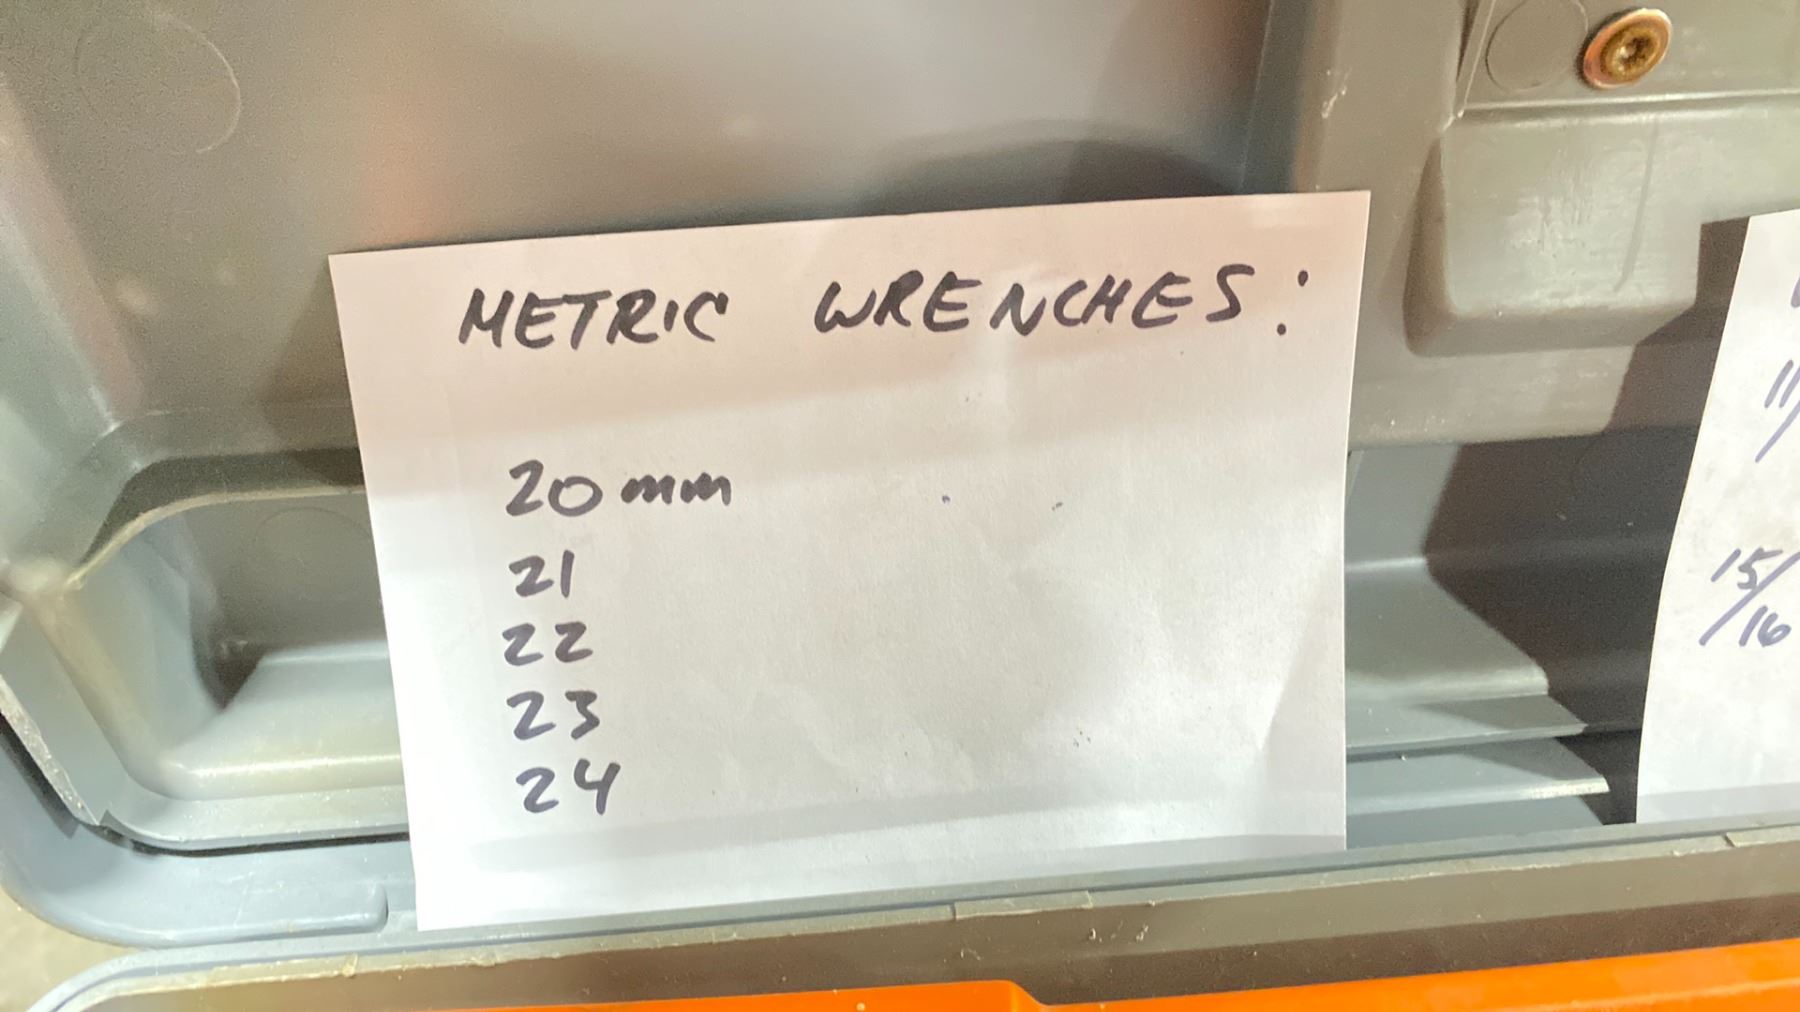 METRIC WRENCHES:
20mm
21
22
23
24
11/
15/16